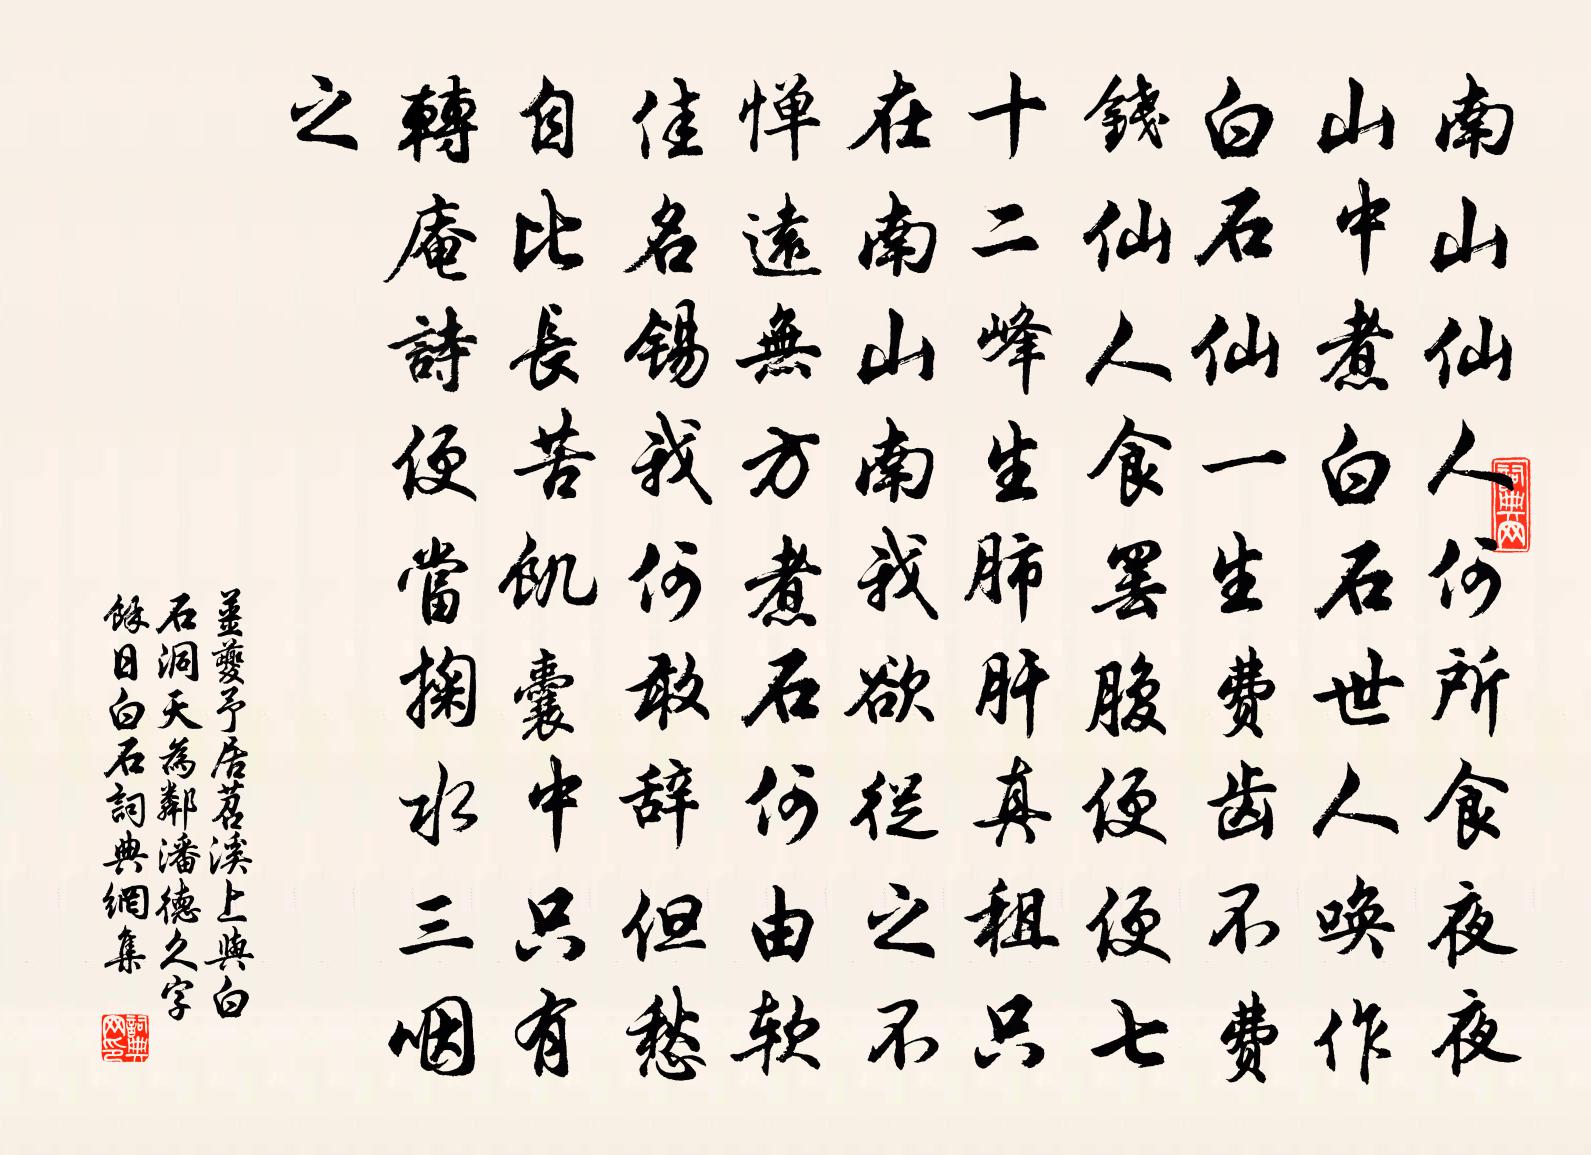 南山仙人何所食夜夜
山中煮白石世人唤作
白石仙一生費齿不費
錢仙人食罷腹便便七
十二峰生肺肝真租只
在南山南我欲從之不
惮遠無方煮石何由軟
佳名錫我何敢辞但愁
自比長苦飢囊中只有
轉庵詩便當掬水三咽
之
薑夔予居苕溪上與白
石洞天為鄰潘德久字
餘日白石詞典網集
詞典网
詞典网印